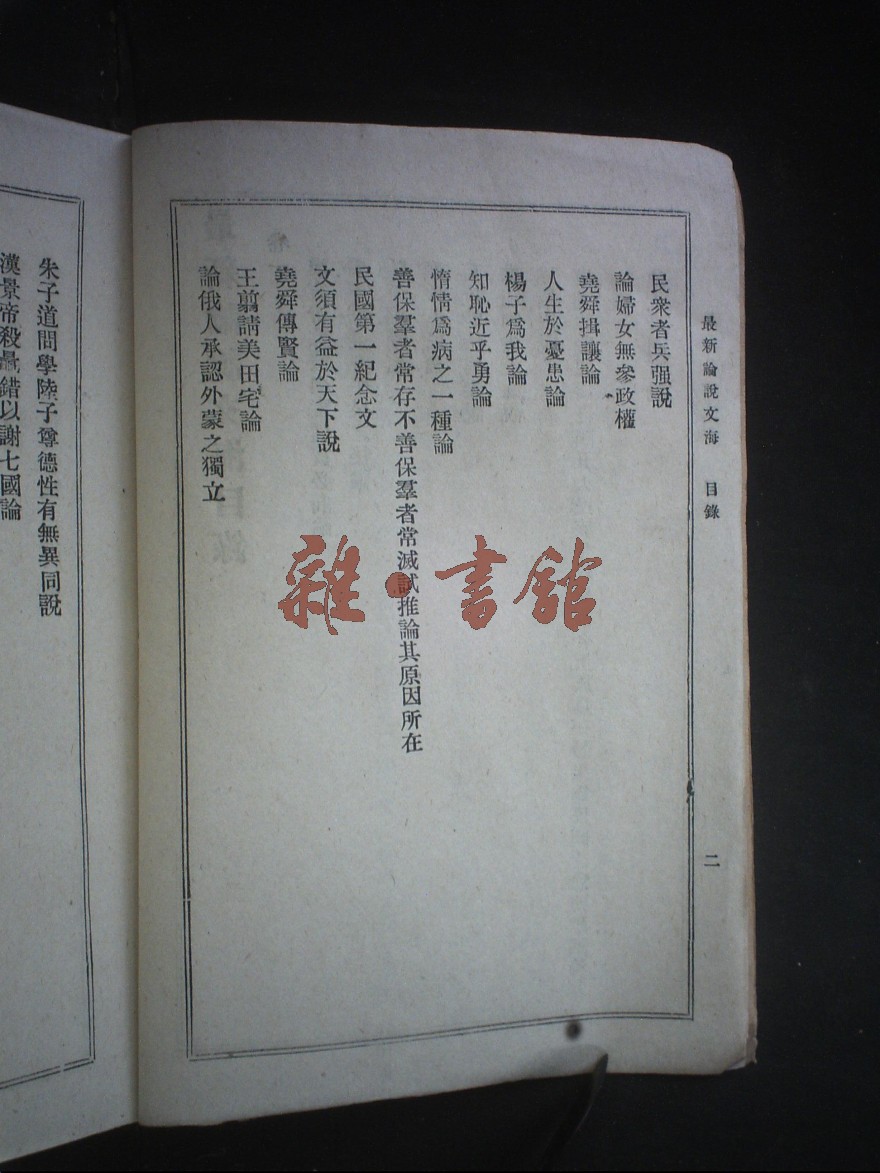 最新論說文海　目錄　二
民衆者兵强說
論婦女無參政權
堯舜揖讓論
人生於憂患論
楊子爲我論
知恥近乎勇論
惰情爲病之一種論
善保羣者常存不善保羣者常滅試推論其原因所在
民國第一紀念文
文須有益於天下說
堯舜傳賢論
王翦請美田宅論
論俄人承認外蒙之獨立
朱子道問學陸子尊德性有無異同說
漢景帝殺鼂錯以謝七國論
雜·書館